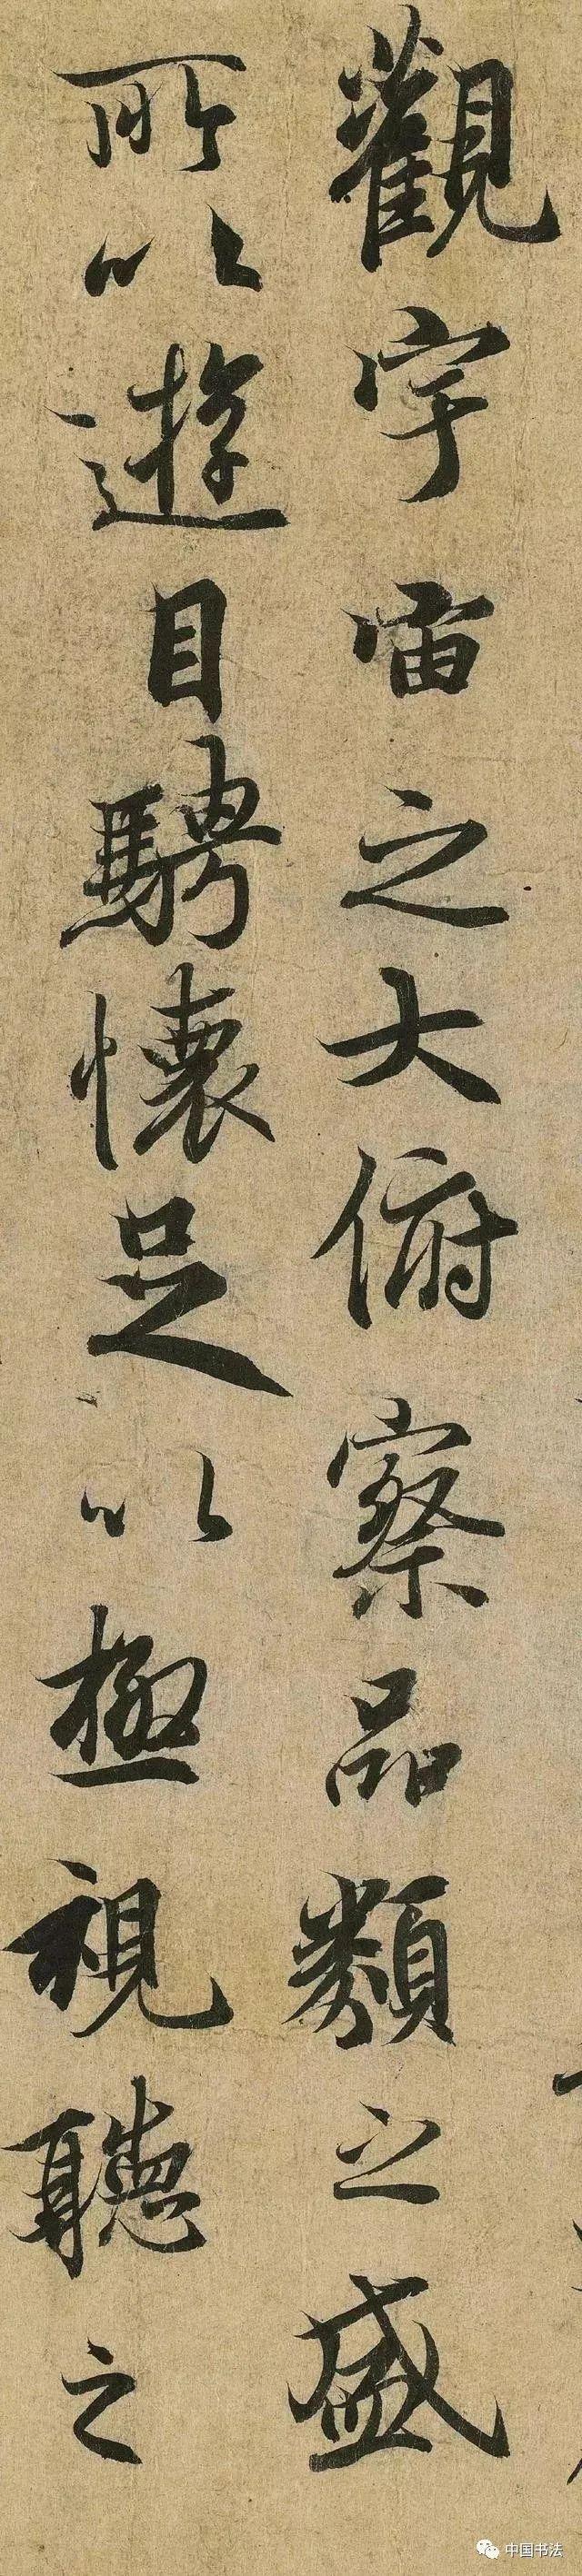 觀宇宙之大俯察品類之盛
所以遊目騁懷足以極視聽之
中国书法